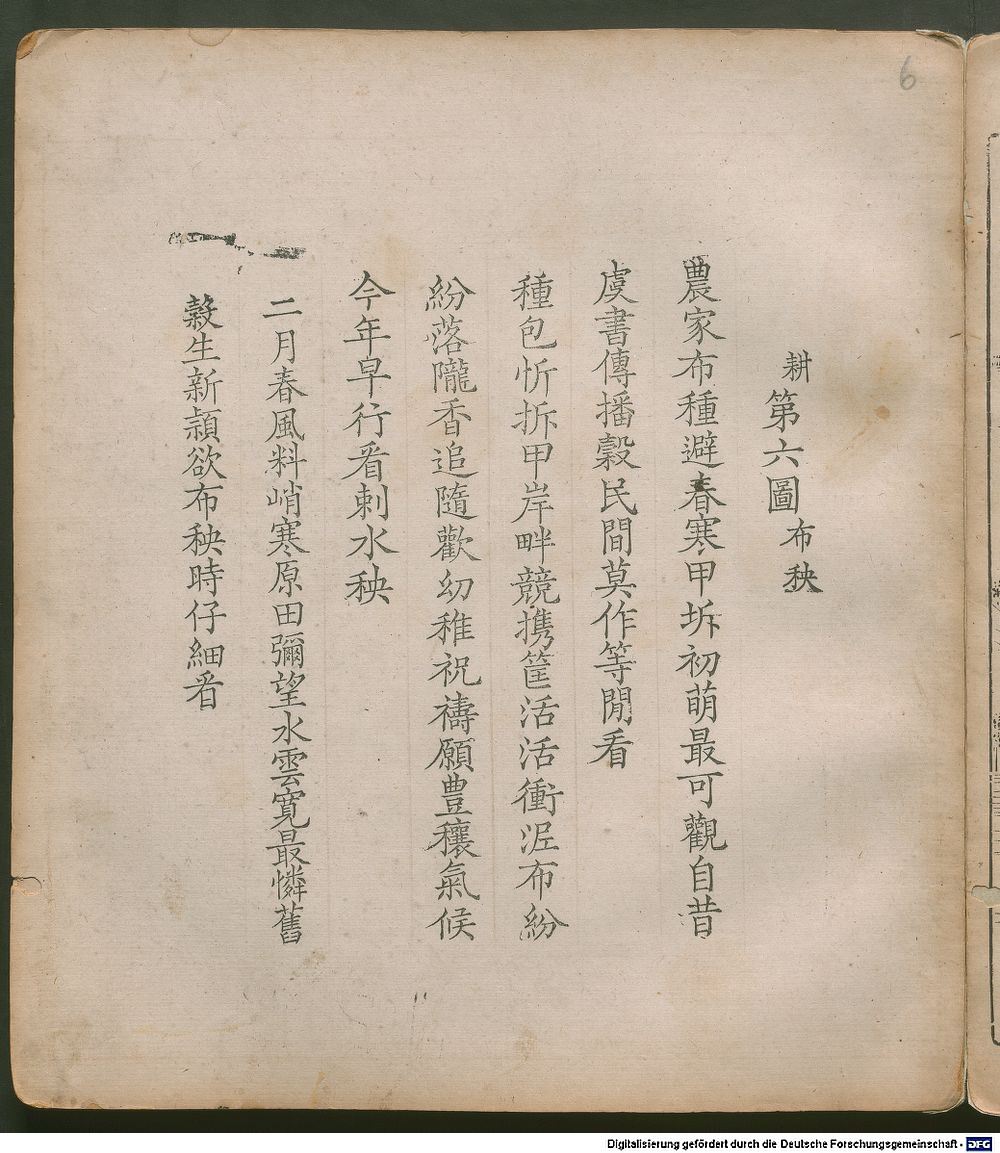 6
耕第六圖布秧
農家布種避春寒甲坼初萌最可觀自昔
虞書傳播穀民間莫作等閒看
種包忻拆甲岸畔競携筐活活衝泥布紛
紛落隴香追隨歡幼稚祝禱願豊穰氣候
今年早行看刺水秧
二月春風料峭寒原田彌望水雲寬最憐舊
穀生新穎欲布秧時仔細看
Digitalisierung gefördert durch die Deutsche Forschungsgemeinschaft - DFG